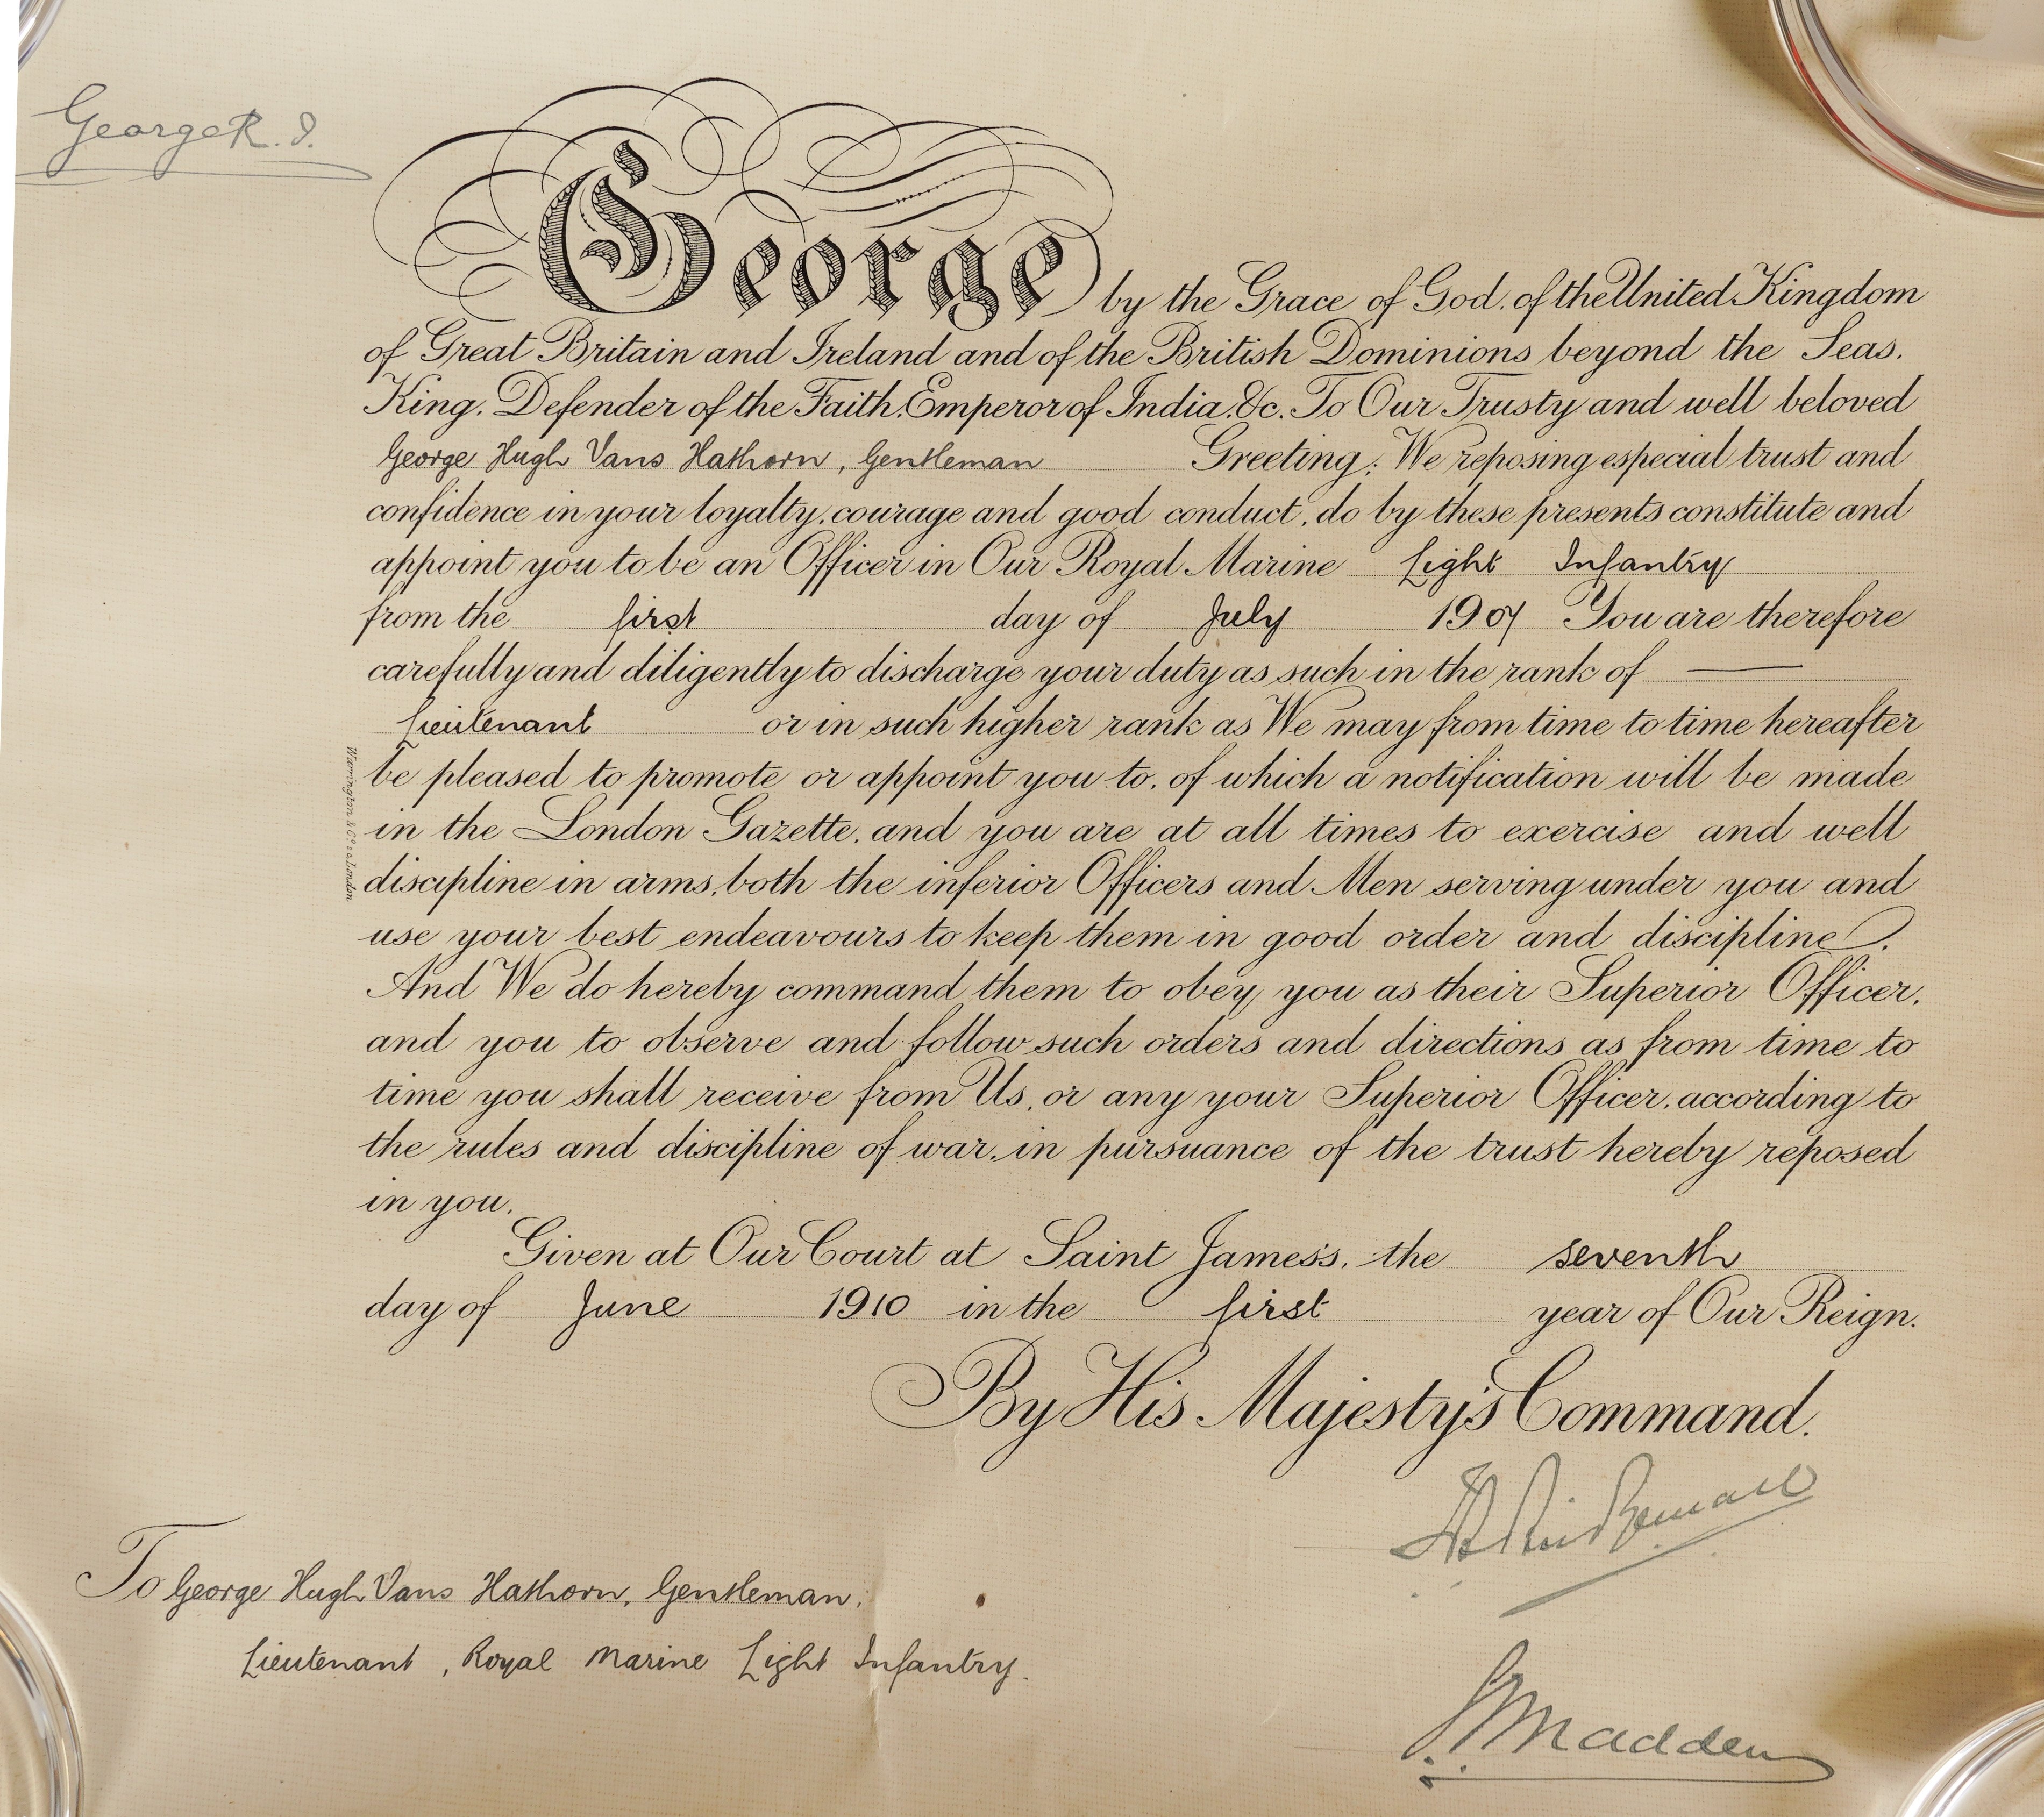 George R. I.
George by the Grace of God, of the United Kingdom
of Great Britain and Ireland and of the British Dominions beyond the Seas,
King, Defender of the Faith, Emperor of India, &c. To Our Trusty and well beloved
George Hugh Vans Hathorn, Gentleman Greeting: We reposing especial trust and
confidence in your loyalty, courage and good conduct, do by these presents constitute and
appoint you to be an Officer in Our Royal Marine Light Infantry
from the first day of July 1907 You are therefore
carefully and diligently to discharge your duty as such in the rank of
Lieutenant or in such higher rank as We may from time to time hereafter
be pleased to promote or appoint you to, of which a notification will be made
in the London Gazette, and you are at all times to exercise and well
discipline in arms, both the inferior Officers and Men serving under you and
use your best endeavours to keep them in good order and discipline.
And We do hereby command them to obey you as their Superior Officer,
and you to observe and follow such orders and directions as from time to
time you shall receive from Us, or any your Superior Officer, according to
the rules and discipline of war, in pursuance of the trust hereby reposed
in you.
Given at Our Court at Saint James's, the seventh
day of June 1910 in the first year of Our Reign.
By His Majesty's Command.
To George Hugh Vans Hathorn, Gentleman.
Lieutenant, Royal Marine Light Infantry.
Madden
Warrington & Co London